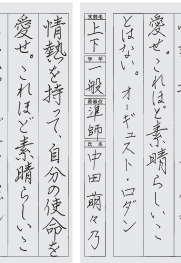 愛せ。これほど素晴らしいこ
とはない。オーギュスト・ロダン
支部名 上下 学年 一般 段級位 準師 氏名 中田萌々乃
情熱を持って、自分の使命を
愛せ。これほど素晴らしいこ